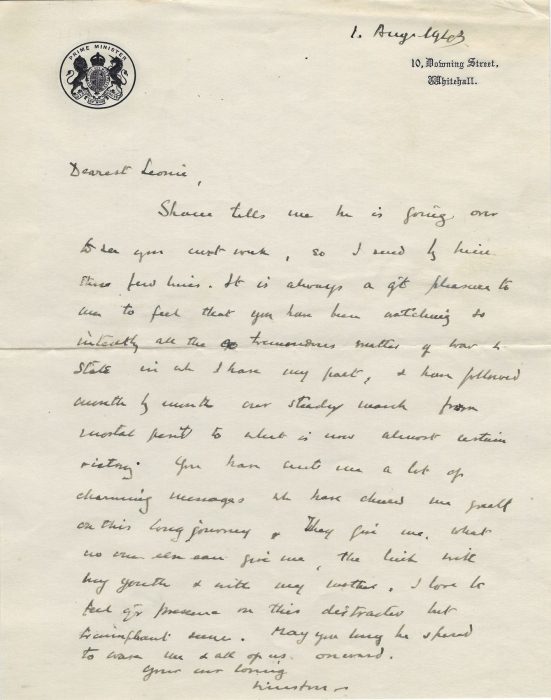 1. Aug. 1943
PRIME MINISTER
10, Downing Street,
Whitehall.
Dearest Leonie,
Shane tells me he is going over
to see you next week, so I send by him
these few lines. It is always a gt pleasure to
me to feel that you have been watching so
intently all the tremendous matters of War &
State in wh I have my part, & have followed
month by month our steady march from
mortal peril to what is now almost certain
victory. You have sent me a lot of
charming messages wh have cheered me greatly
on this long journey. They give me, what
no one else can give me, the link with
my youth & with my mother. I love to
feel yr presence on this distracted but
triumphant scene. May you long be spared
to us & all of us onward.
Your ever loving
Winston